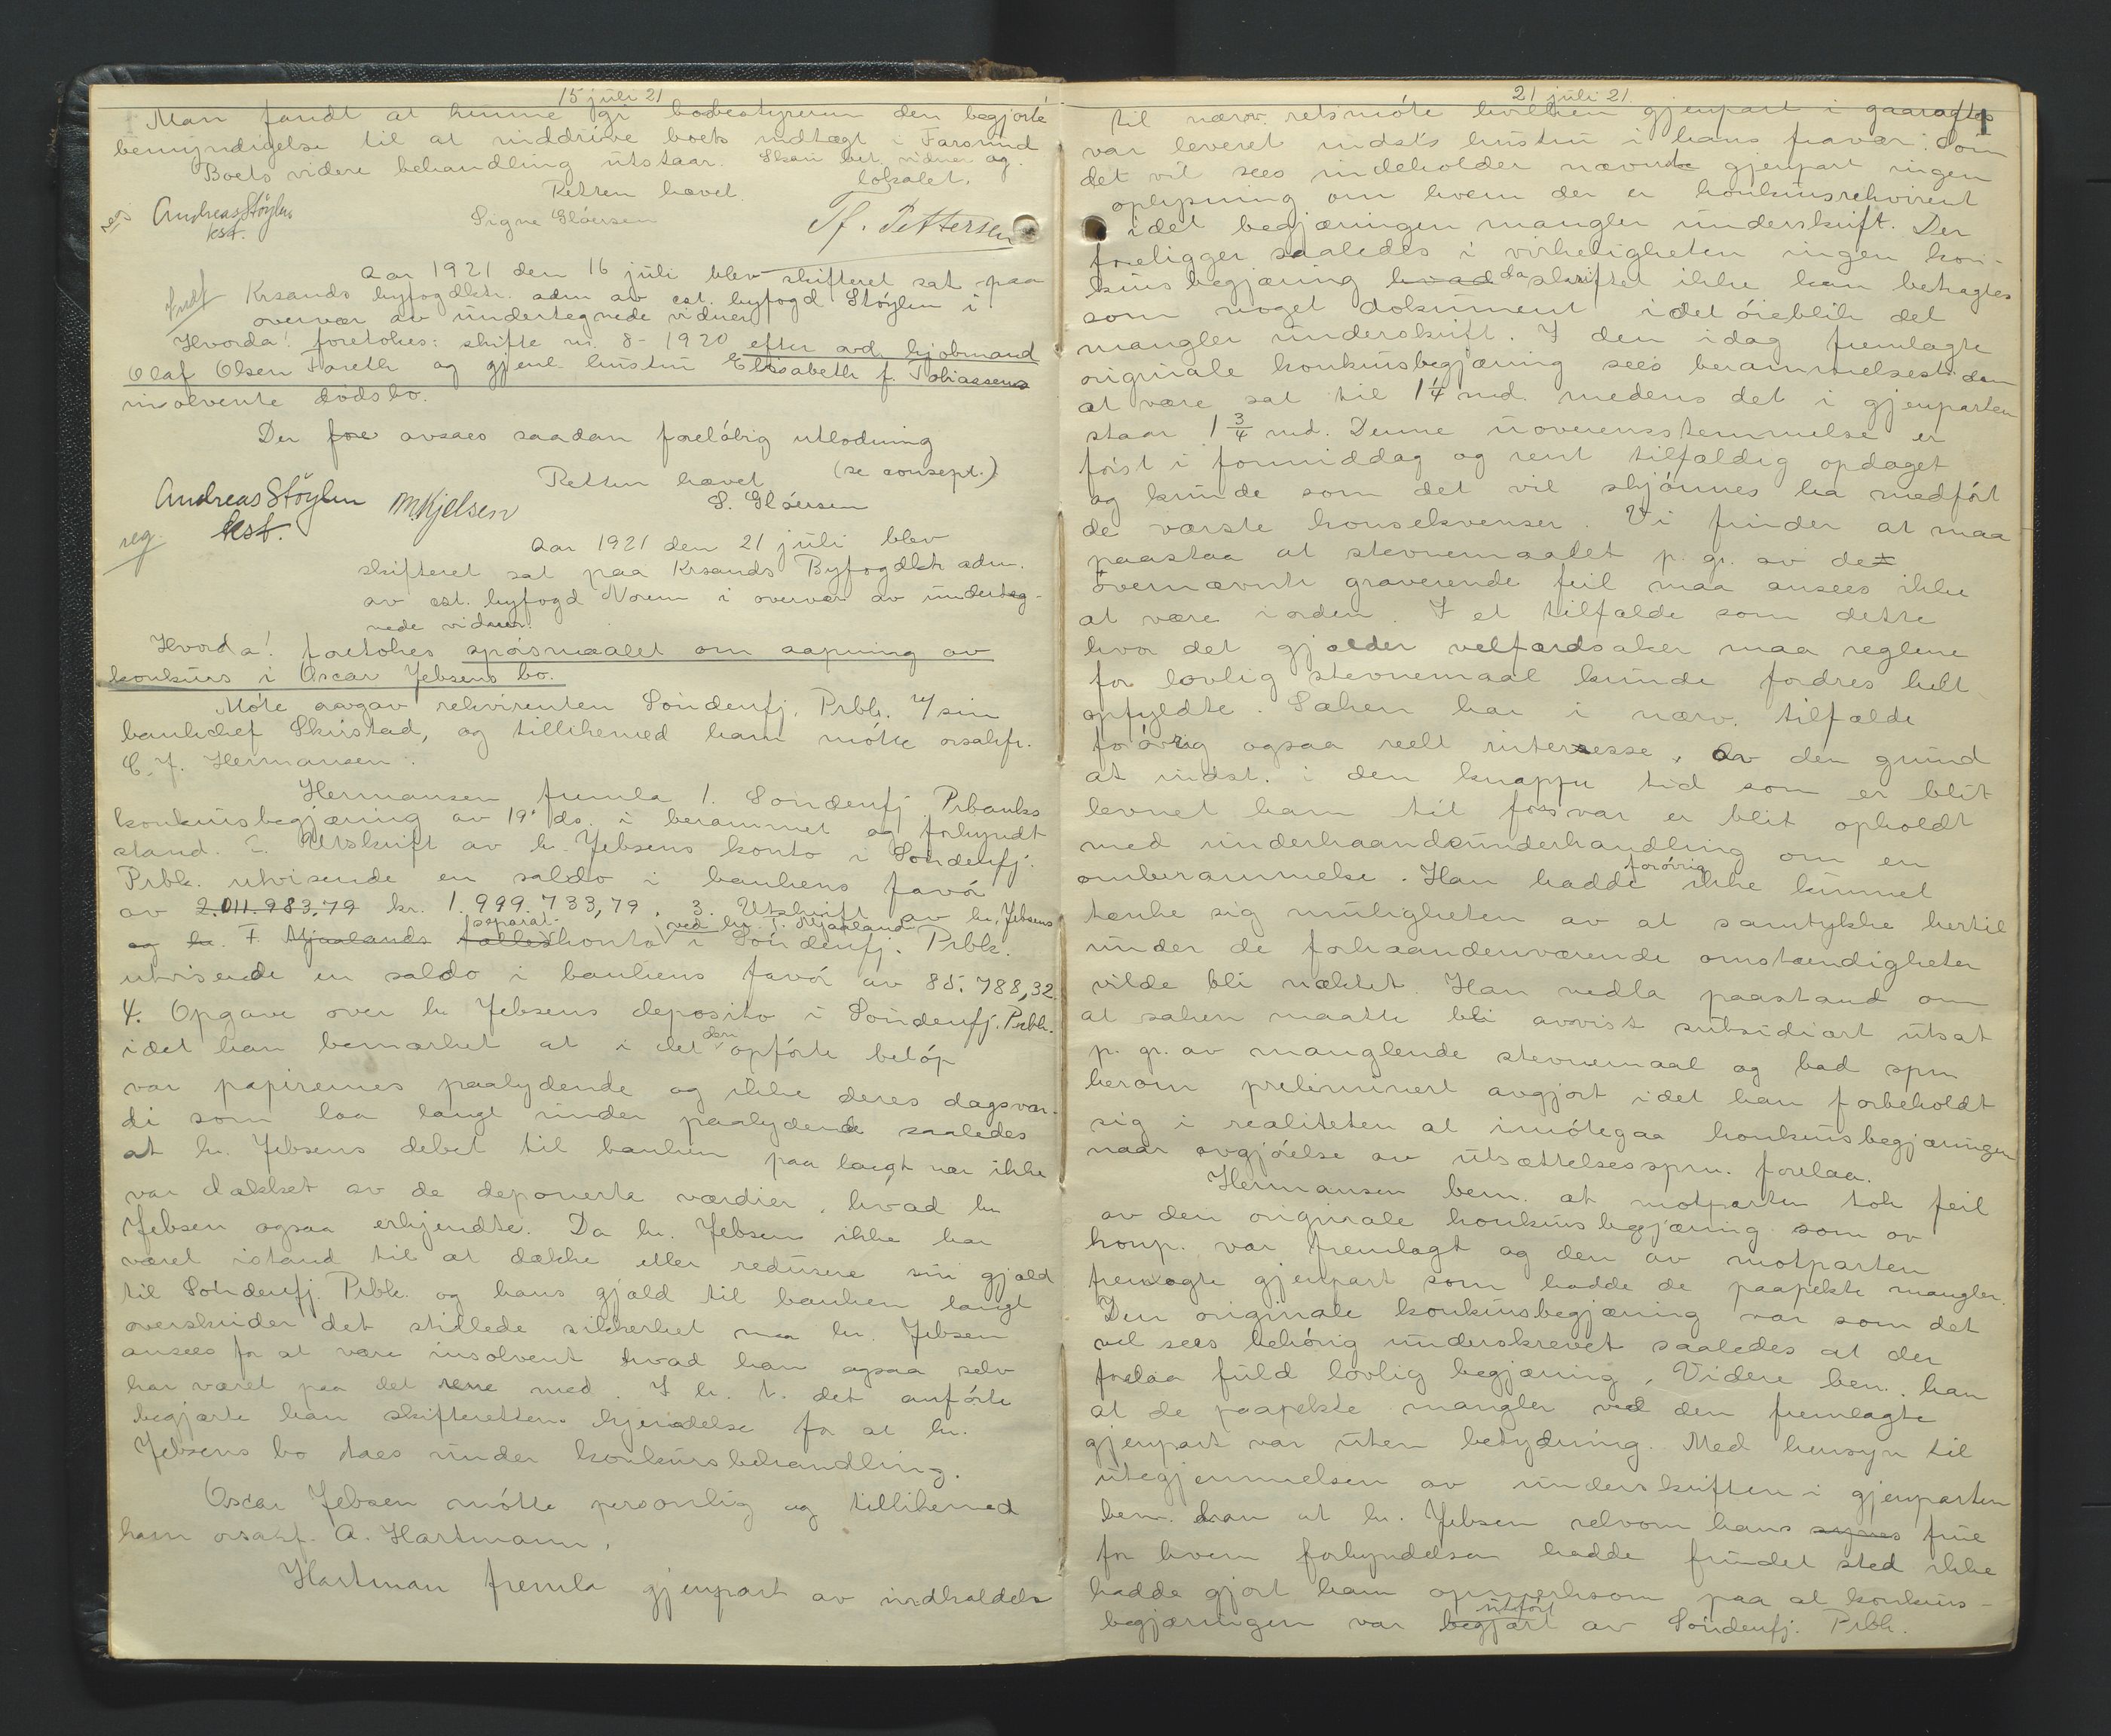 15 juli 21
Man fandt at kunne gi bobestyreren den begjærte
bemyndigelse til at inddrive boets indtægt i Farsund
Boets videre behandling utstaar. Skén bet. vidner og
lokalet.
Retten hævet.
reg
Andreas Støylen
kst.
Signe Gløersen
Tf. Pettersen
Aar 1921 den 16 juli blev skifteret sat paa
Krsands byfogdktr. adm av cst. byfogd Støylen i
overvær av undertegnede vidner
Hvorda! foretokes: skifte nr. 8-1920 efter avd. kjøbmand
Olaf Olsen Fareth og gjenl. hustru Elisabeth f. Tobiassens
insolvente dødsbo.
Der fore avsaes saadan foreløbig utlodning
(se consept.)
Retten hævet
Andreas Støylen
kst.
M. Kjelsen
S. Gløersen
reg.
Aar 1921 den 21 juli blev
skifteret sat paa Krsands Byfogdktr adm.
av cst. byfogd Norem i overvær av underteg-
nede vidner.
Hvorda! foretokes spørsmaalet om aapning av
konkurs i Oscar Jebsens bo.
Møte avgav rekvirenten Søndenfj. Prbk. v/ sin
bankchef Skustad, og tillikemed ham møtte orsakfr.
C. J. Hermansen.
Hermansen fremla 1. Søndenfj. Prbanks
konkursbegjæring av 19' ds. i berammet og forkyndt
stand. 2. Utskrift av hr. Jebsens konto i Søndenfj.
Prbk. utvisende en saldo i bankens favør
av 2.011.983,79 kr. 1.999.733,79, 3. Utskrift av hr. Jebsens
separat- ved hr. T. Mjaaland
og hr. T. Mjaalands fælles konto i Søndenfj. Prbk.
utvisende en saldo i bankens favør av 85.788,32.
4. Opgave over hr Jebsens deposito i Søndenfj. Prbk.
idet han bemærket at i det den opførte beløp
var papirernes paalydende og ikke deres dagsvær-
di som laa langt under paalydende saaledes
at hr. Jebsens debet til banken paa langt nær ikke
var dækket av de deponerte værdier, hvad hr
Jebsen ogsaa erkjendte. Da hr. Jebsen ikke har
været istand til at dække eller redusere sin gjæld
til Søndenfj. Prbk. og hans gjæld til banken langt
overskrider det stillede sikkerhet maa hr. Jebsen
ansees for at være insolvent hvad han ogsaa selv
har været paa det rene med. I h. t. det anførte
begjærte han skifterettens kjendelse for at hr.
Jebsens bo taes under konkursbehandling.
Oscar Jebsen møtte personlig og tillikemed
ham orsakf. A. Hartmann.
Hartman fremla gjenpart av indkaldels
21 juli 21.
1
til nærv. retsmøte hvilken gjenpart i gaaraftes
var leveret indst's hustru i hans fravær. Som
det vil sees indeholder nævnte gjenpart ingen
oplysning om hvem der er konkursrekvirent
idet begjæringen mangler underskrift. Der
foreligger saaledes i virkeligheten ingen kon-
kursbegjæring hvad da skriftet ikke kan betragtes
som noget dokument i det øieblik det
mangler underskrift. I den idag fremlagte
originale konkursbegjæring sees berammelsestiden
at være sat til 1 1/4 md. medens det i gjenparten
staar 1 3/4 md. Denne uoverensstemmelse er
først i formiddag og rent tilfældig opdaget
og kunde som det vil skjønnes ha medført
de værste konsekvenser. Vi finder at maa
paastaa at stevnemaalet p. gr. av det
overnævnte graverende feil maa ansees ikke
at være i orden. I et tilfælde som dette
hvor det gjælder velfærdsaker maa reglene
for lovlig stevnemaal kunde fordres helt
opfyldte. Saken har i nærv. tilfælde
forøvrig ogsaa reelt interesse, av den grund
at indst. i den knappe tid som er blit
levnet ham til forsvar er blit opholdt
med underhaandsunderhandling om en
omberammelse. Han hadde forøvrig ikke kunnet
tænke sig muligheten av at samtykke hertil
under de forhaandenværende omstændigheter
vilde bli nektet. Han nedla paastand om
at saken maatte bli avvist subsidiært utsat
p. gr. av manglende stevnemaal og bad spm
herom preliminert avgjort idet han forbeholdt
sig i realiteten at imøtegaa konkursbegjæringen
naar avgjørelse av utsættelsesspm. forelaa.
Hermansen bem. at motparten tok feil
av den originale konkursbegjæring som av
komp. var fremlagt og den av motparten
fremlagte gjenpart som hadde de paapekte mangler.
Den originale konkursbegjæring var som det
vil sees behørig underskrevet saaledes at der
forelaa fuld lovlig begjæring. Videre bem. han
at de paapekte mangler ved den fremlagte
gjenpart var uten betydning. Med hensyn til
utegjemmelsen av underskriften i gjenparten
bem. han at hr. Jebsen selvom hans synes frue
for hvem forkyndelsen hadde fundet sted ikke
hadde gjort ham opmerksom paa at konkurs-
begjæringen var begjært utført av Søndenfj. Prbk.